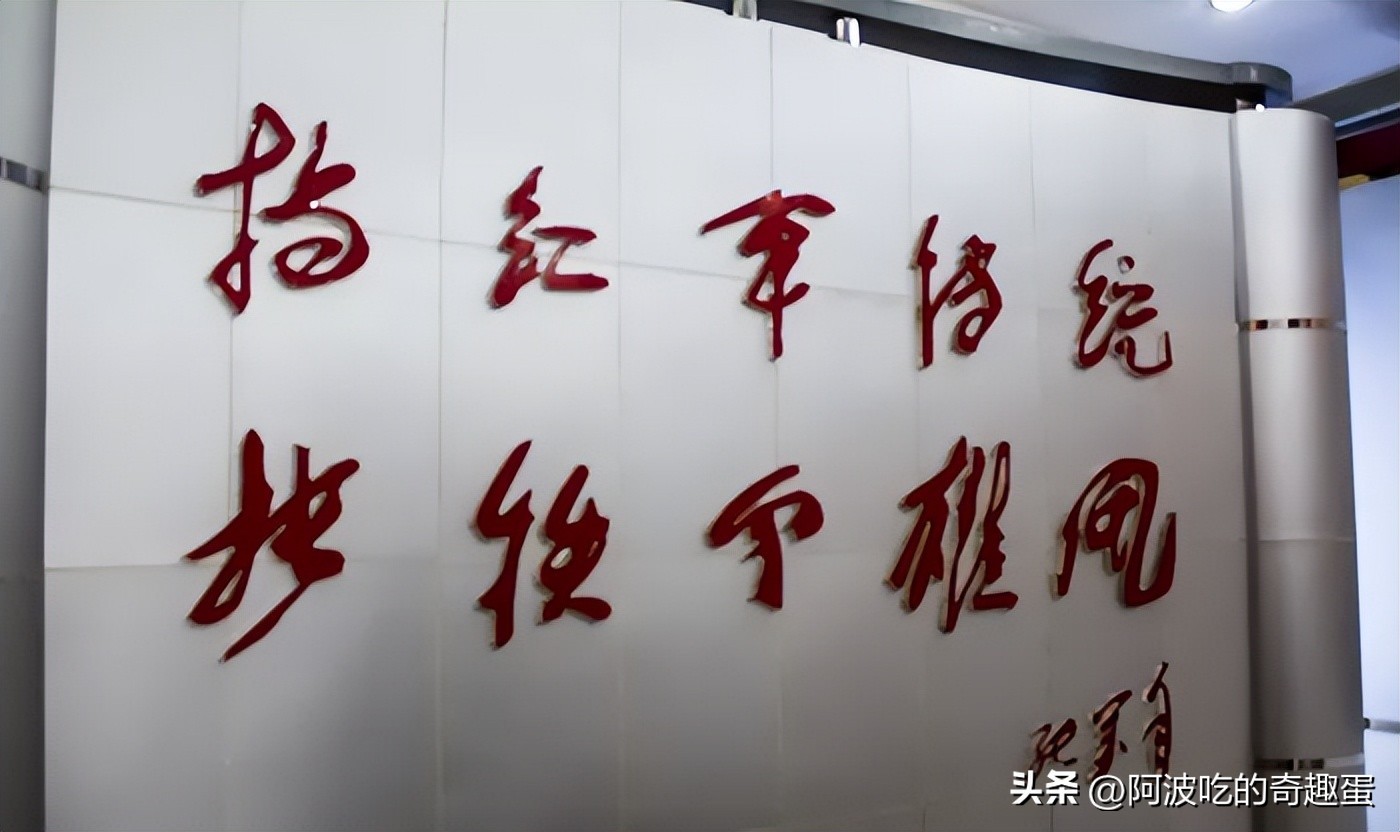 扬红军传统
振铁军雄风
头条 @阿波吃的奇趣蛋